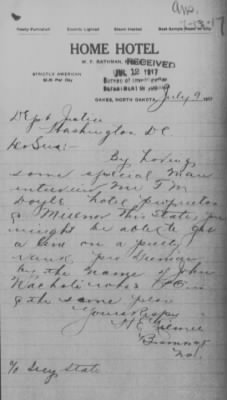 Ans.
7-13-17
Newly Furnished Electric Lighted Steam Heated Best Sample Room in City
HOME HOTEL
W. F. BATHMAN,
RECEIVED
JUL 12 1917
Bureau of Investigation
DEPARTMENT OF JUSTICE
STRICTLY AMERICAN
Per Day
OAKES, NORTH DAKOTA, July 9 1917
Dept Justice
Washington D C
Dr Sirs:-
By having
some special man
interview Mr T M
Doyle hotel proprietor
of Milnor this State, you
might be able to get
a line on a pretty
rank pro German
by the name of John
of the same place
Yours Respy
H E
Bismark
N.D.
% Secy State